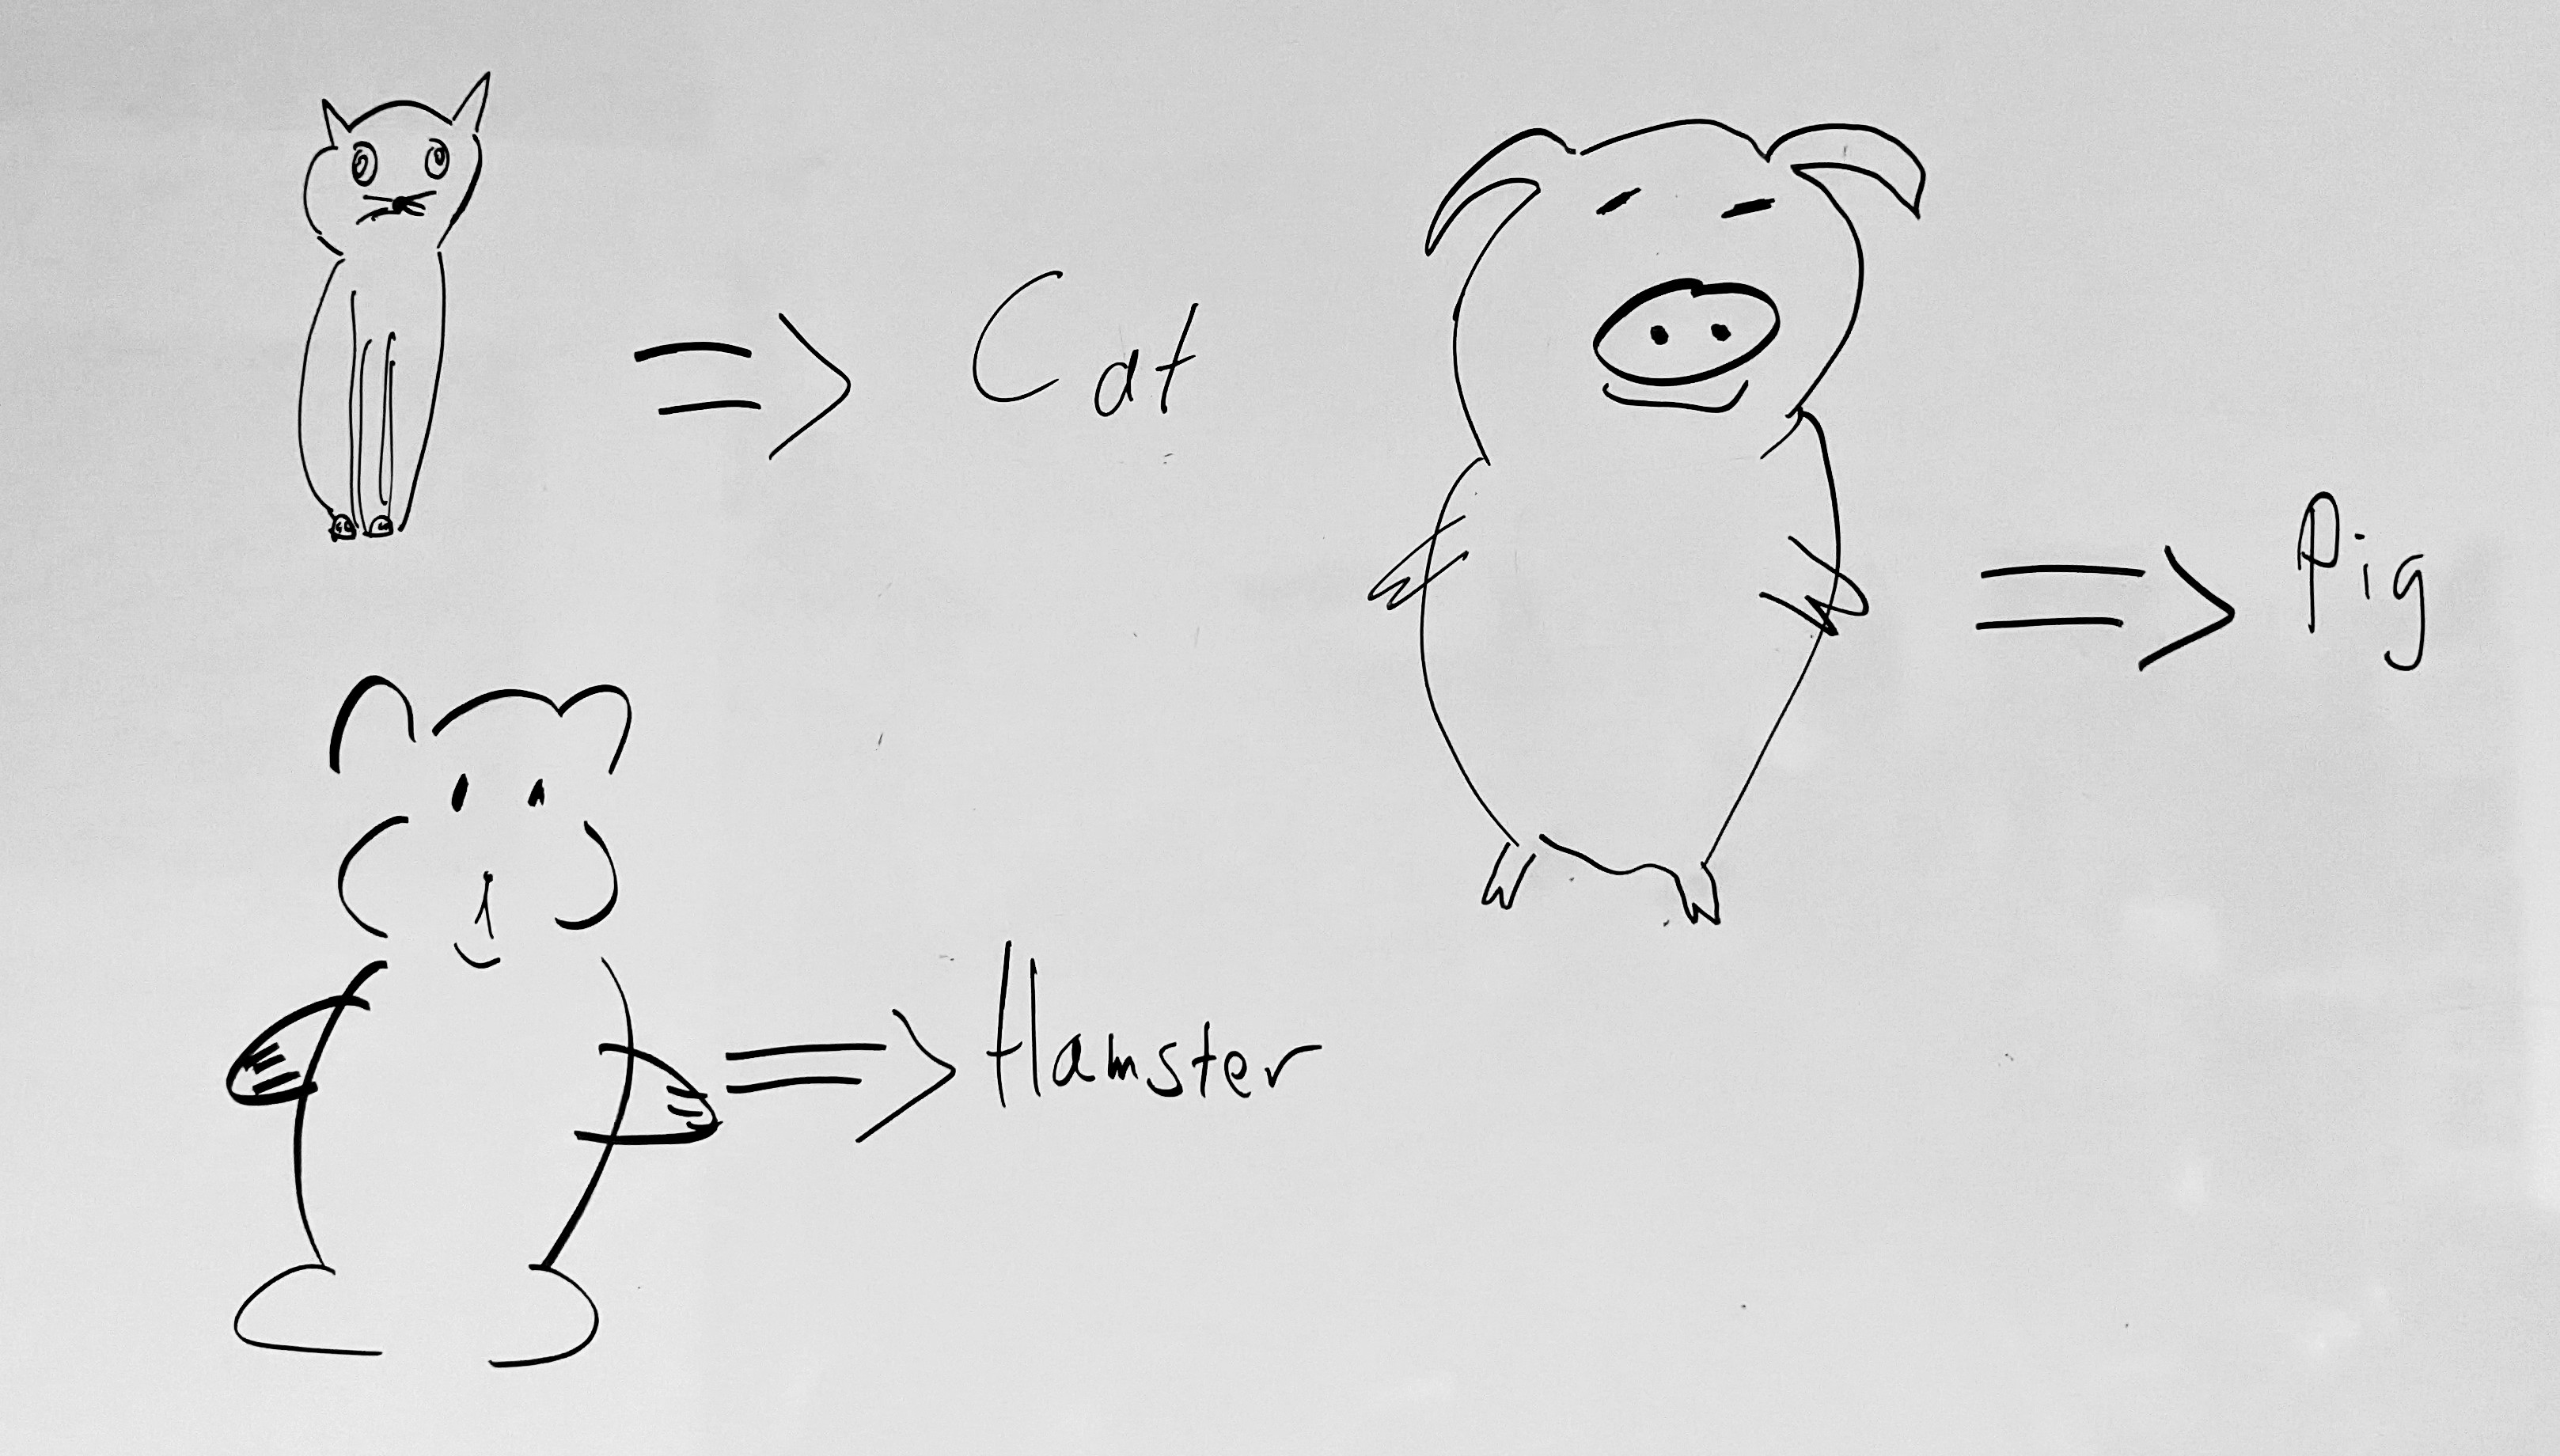 => Cat
=> Pig
=> Hamster